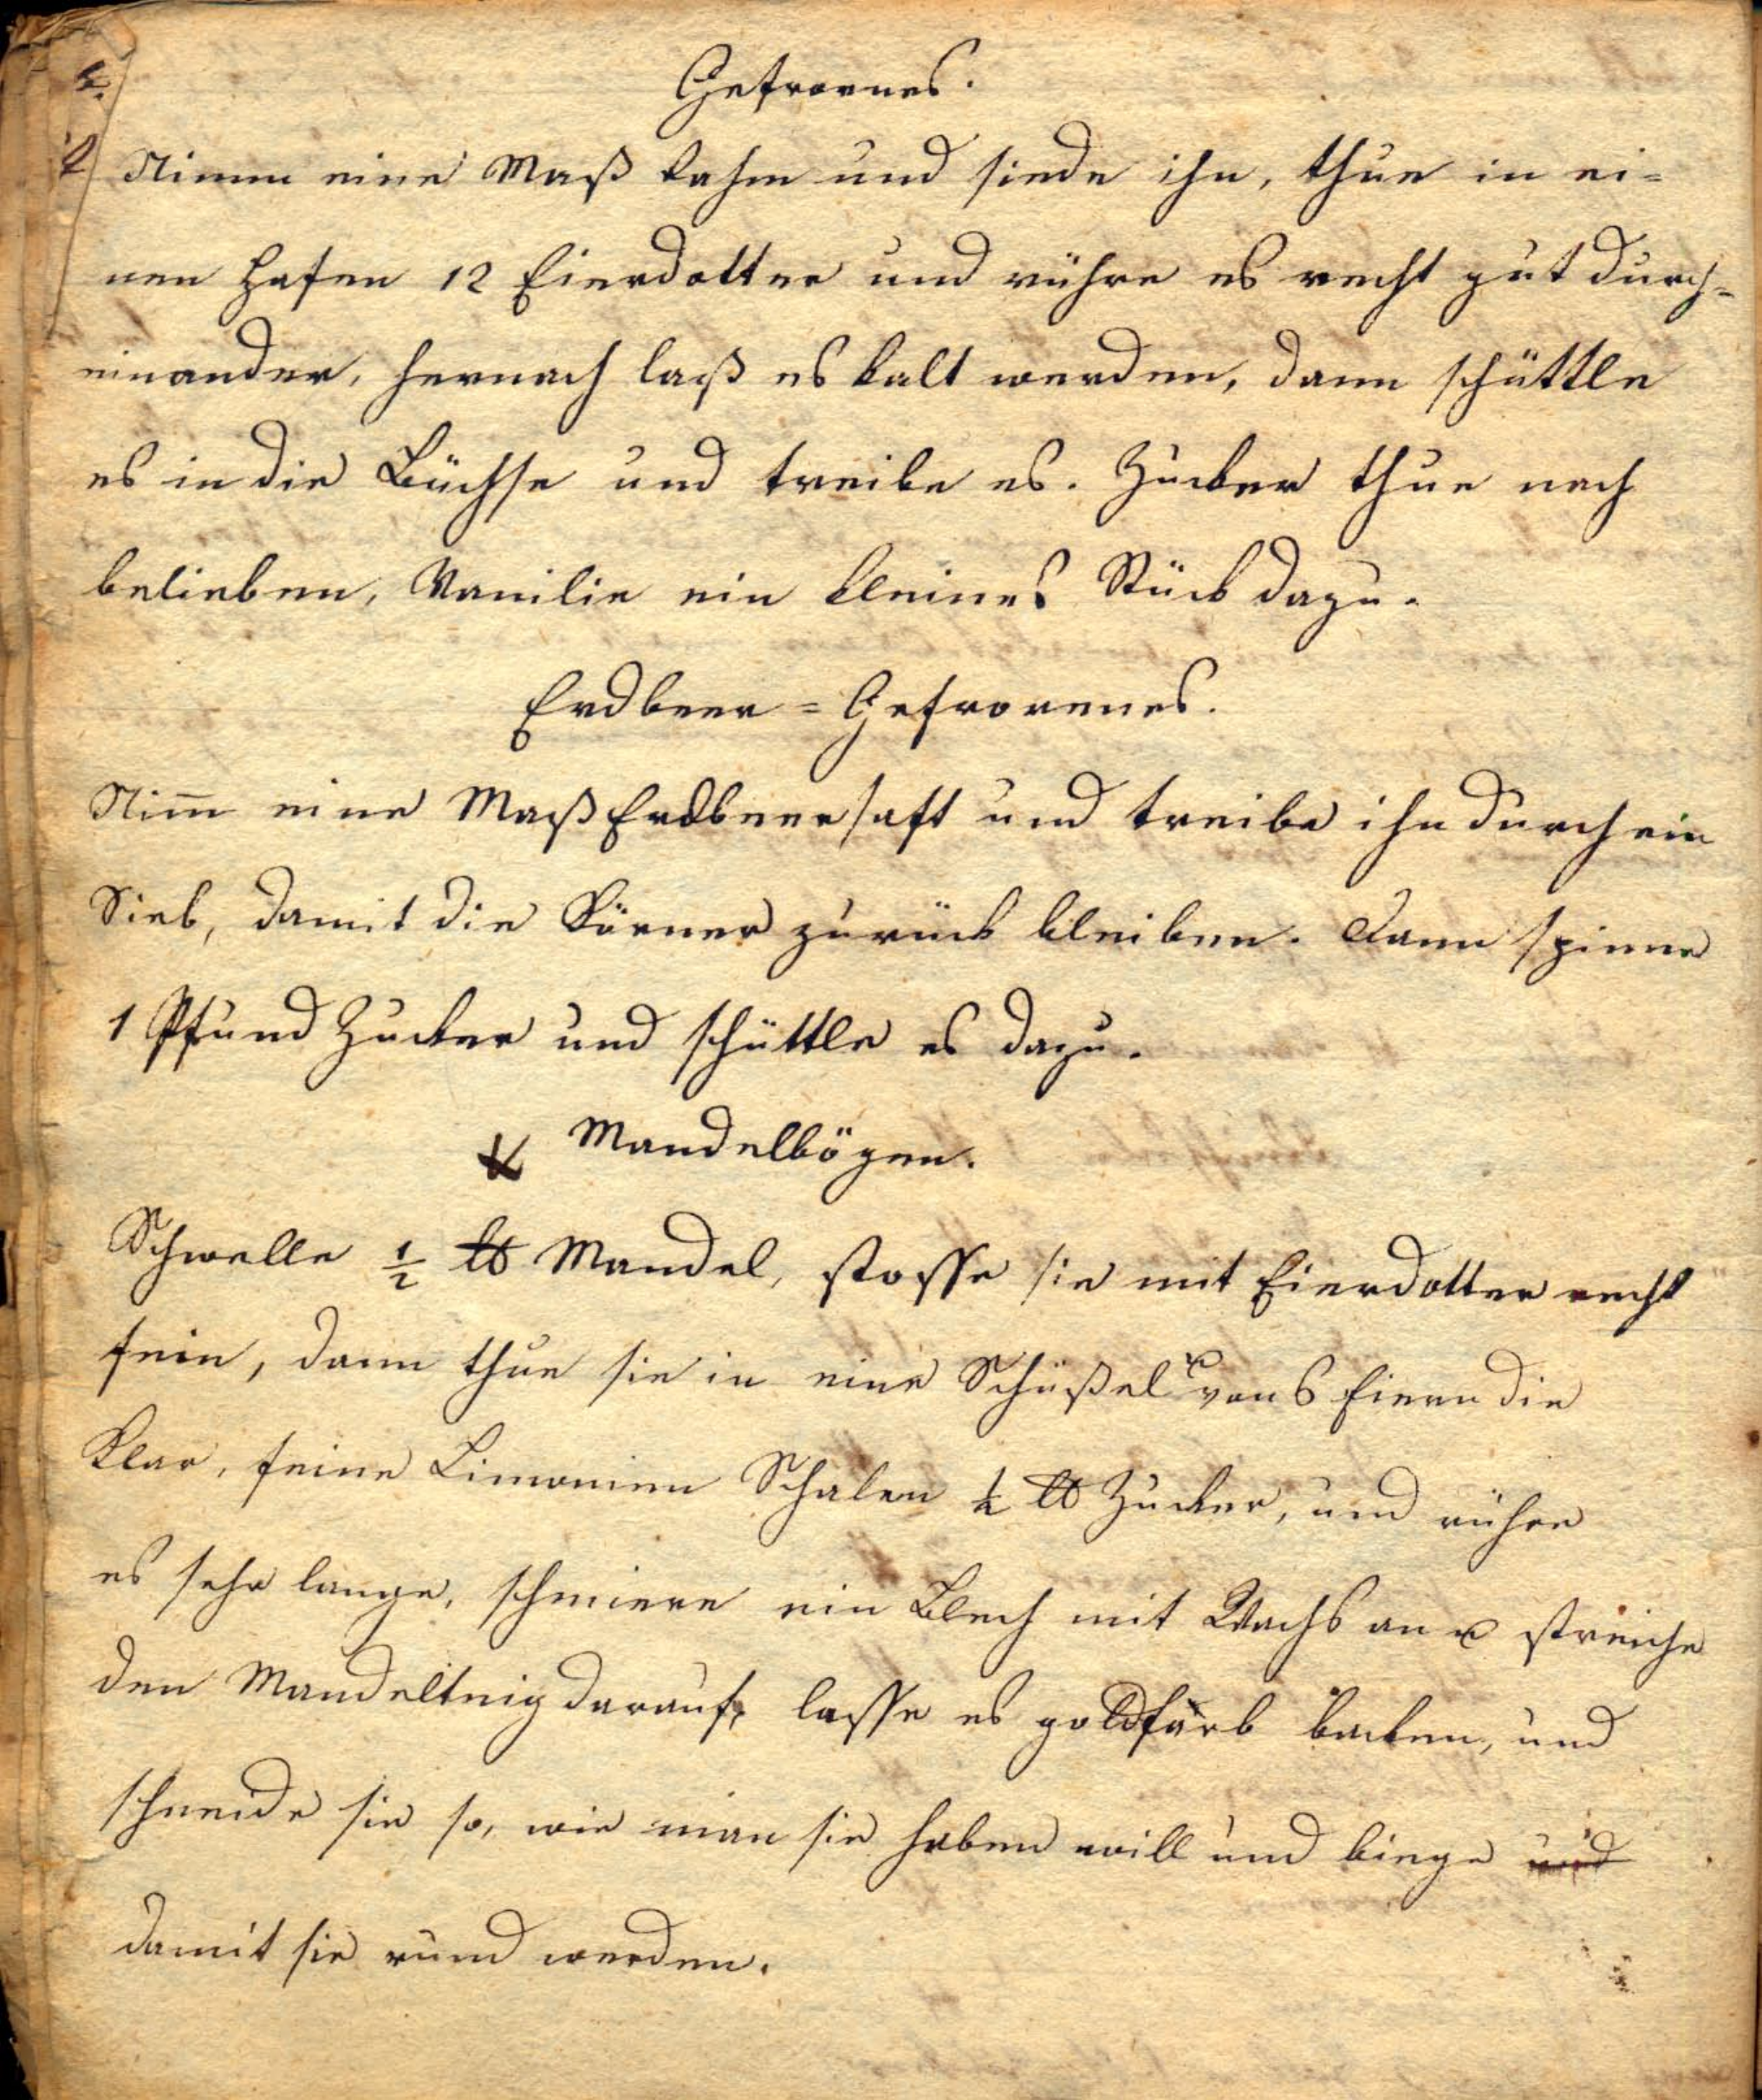 Gefrornes.
Nimm eine Maß Rahm und siede ihn, thue in ei=
nen Hafen 12 Eierdotter und rühre es recht gut durch=
einander, hernach laß es kalt werden, dann schüttle
es in die Büchse und treibe es. Zucker thue nach
belieben, Vanilie ein kleines Stück dazu.
Erdbeer=Gefrorenes.
Nim̄ eine Maß Erdbeersaft und treibe ihn durch ein
Sieb, damit die Körner zurück bleiben. Dann spinne
1 Pfund Zucker und schüttle es dazu.
Mandelbögen.
Schwelle ½ ℔ Mandel, stosse sie mit Eierdotter recht
fein, dann thue sie in eine Schüßel u von 6 Eiern die
Klar, feine Limonien Schalen ½ ℔ Zucker, und rühre
es sehr lange, schmiere ein Blech mit Wachs an u streiche
den Mandelteig darauf, lasse es goldfärb backen, und
schneide sie so, wie man sie haben will und biege und
damit sie rund werden.